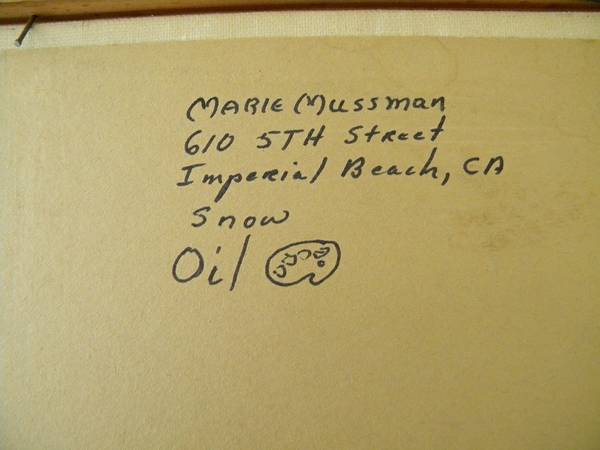 MARIE Mussman
610 5TH Street
Imperial Beach, CA
Snow
Oil